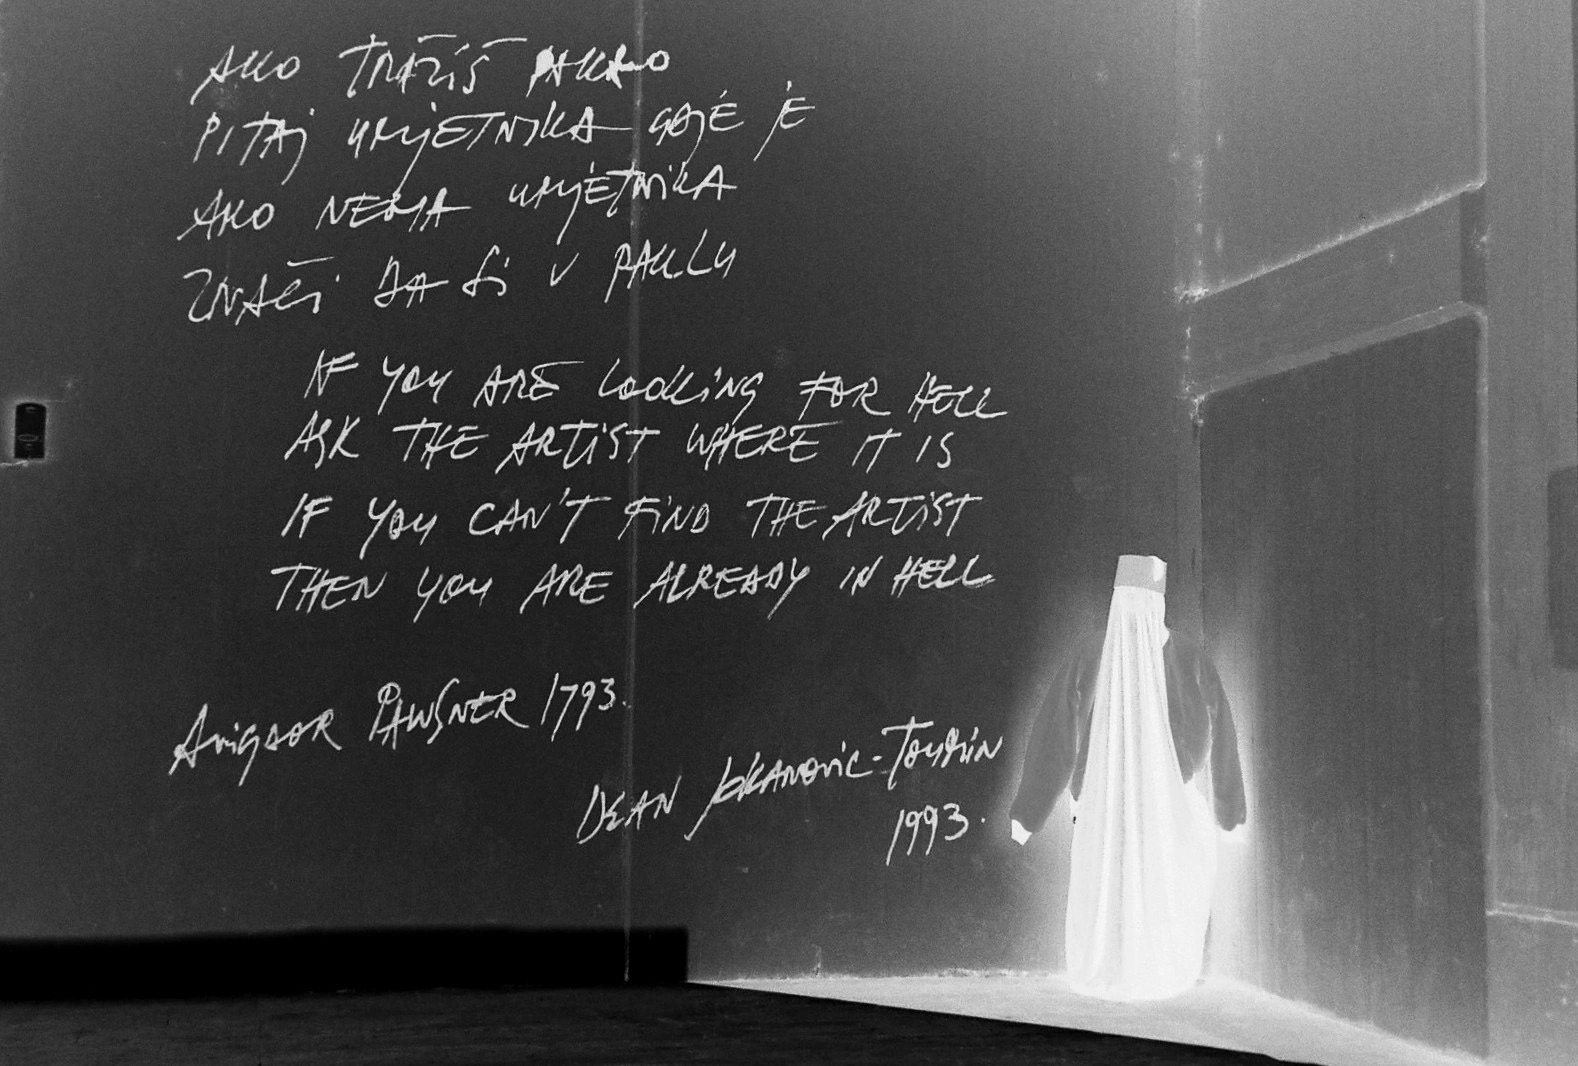 AKO TRAŽIŠ PAKAO
PITAJ UMJETNIKA GDJE JE
AKO NEMA UMJETNIKA
ZNAČI DA SI V PAKLU
IF YOU ARE LOOKING FOR HELL
ASK THE ARTIST WHERE IT IS
IF YOU CAN'T FIND THE ARTIST
THEN YOU ARE ALREADY IN HELL
AVIGDOR PAWSNER 1793.
DEAN JOKANOVIC-TOUMIN
1993.